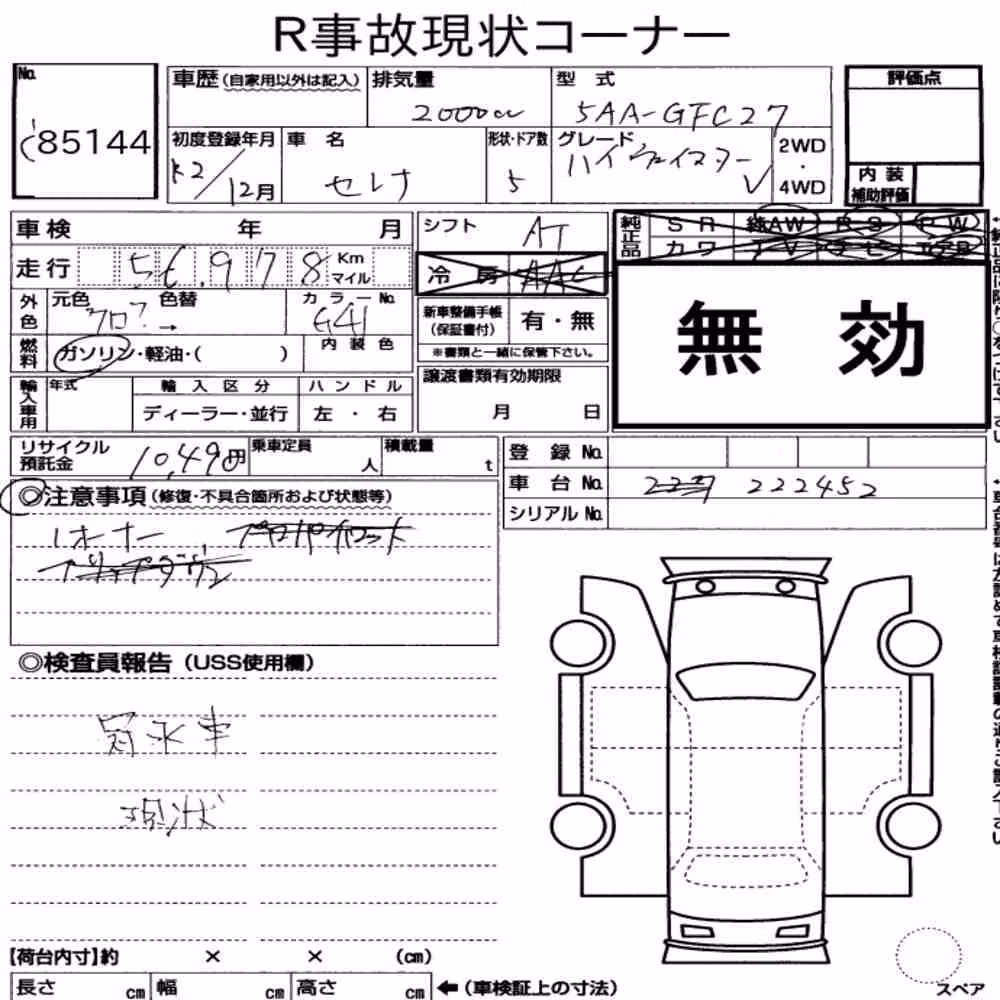 R事故現状コーナー
No.
85144
車歴(自家用以外は記入)
排気量
2000cc
型式
5AA-GFC27
評価点
初度登録年月
R2/12月
車名
セレナ
形状・ドア数
5
グレード
ハイウェイスター
V
2WD
・
4WD
内装
補助評価
車検 年 月
シフト
AT
純正品
SR 純AW RS PW
カワ TV ナビ エアB
走行 56,978 Km
マイル
冷房 AAC
外色
元色 色替
クロ? →
カラーNo.
G41
新車整備手帳
(保証書付)
有・無
無効
燃料
ガソリン・軽油・( )
内装色
※書類と一緒に保管下さい。
輸入車用
年式
輸入区分
ハンドル
ディーラー・並行
左・右
譲渡書類有効期限
月 日
リサイクル
預託金
10,490円
乗車定員
人
積載量
t
登録No.
車台No. 222452
シリアルNo.
◎注意事項(修復・不具合箇所および状態等)
1オーナー
◎検査員報告(USS使用欄)
冠水車
現状
【荷台内寸】約 × × (cm)
長さ cm 幅 cm 高さ cm ←(車検証上の寸法)
スペア